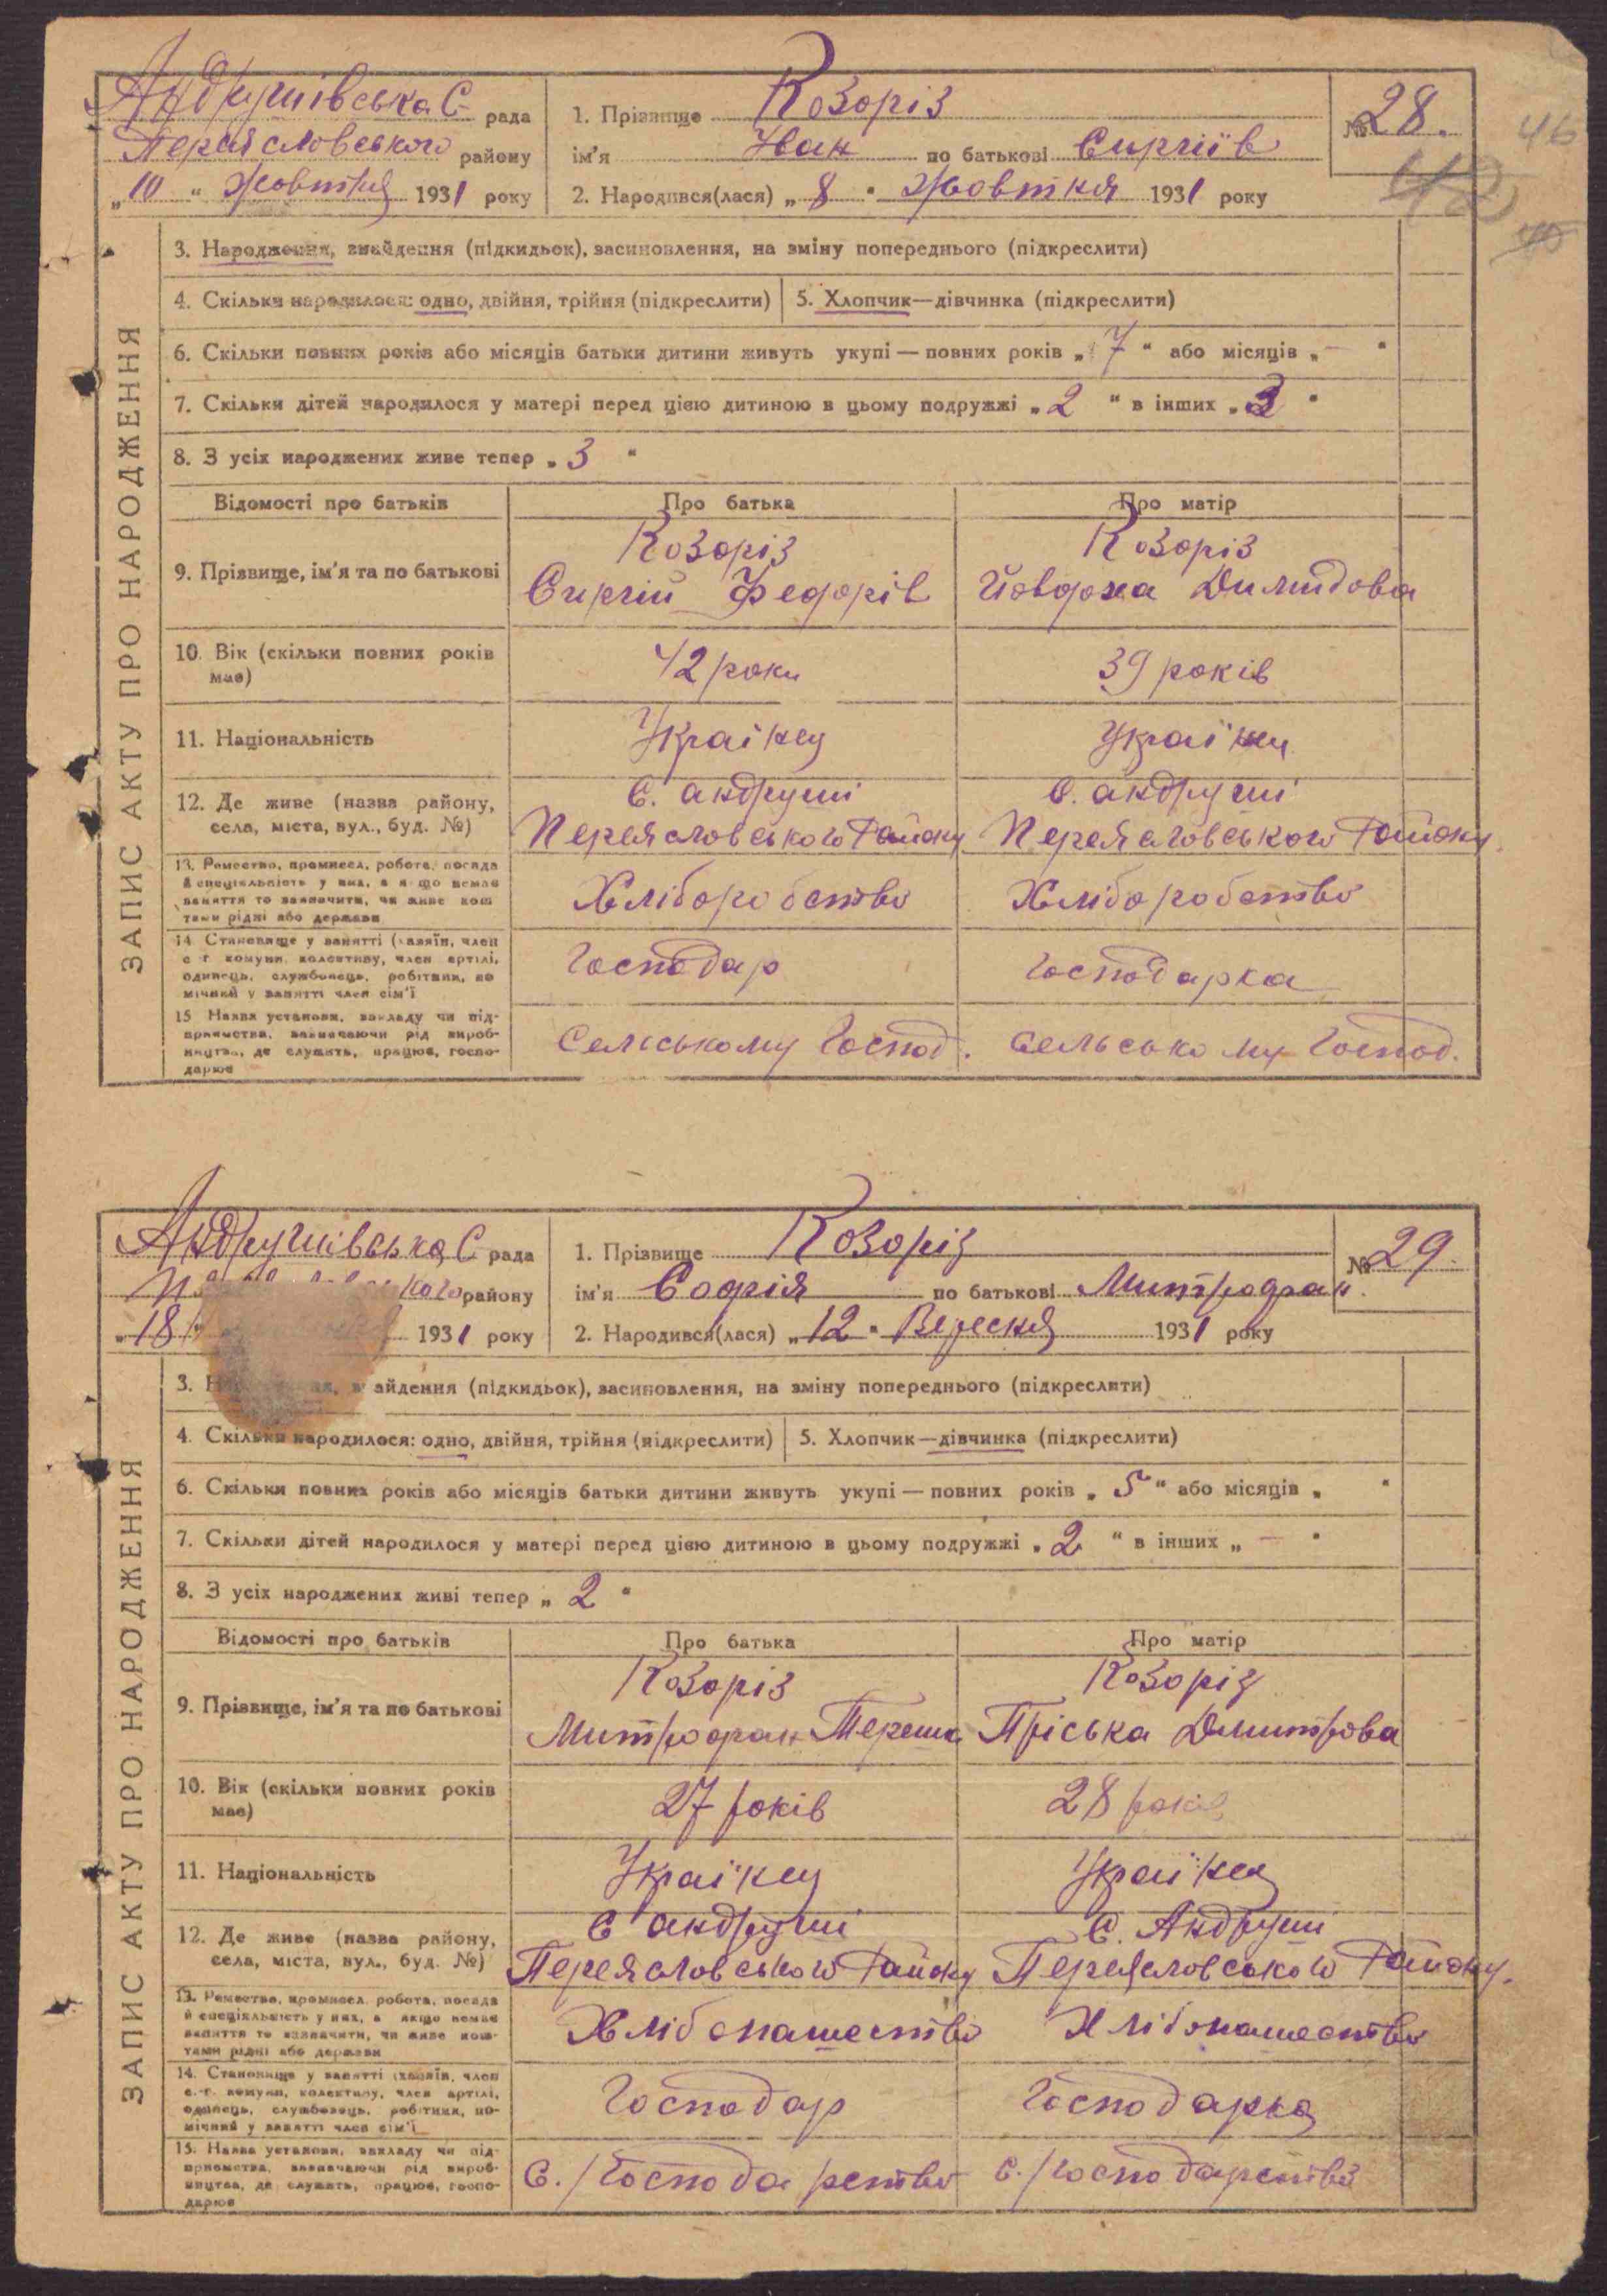 Андрушівська С. рада
Переяславського району
„10 “ Жовтня 1931 року
1. Прізвище Козоріз
ім'я Иван по батькові Сиргіїв
2. Народився(лася) „ 8 “ Жовтня 1931 року
№ 28.
46
42
40
ЗАПИС АКТУ ПРО НАРОДЖЕННЯ
3. Народження, знайдення (підкидьок), засиновлення, на зміну попереднього (підкреслити)
4. Скільки народилося: одно, двійня, трійня (підкреслити)
5. Хлопчик—дівчинка (підкреслити)
6. Скільки повних років або місяців батьки дитини живуть укупі — повних років „ 7 “ або місяців „ — “
7. Скільки дітей народилося у матері перед цією дитиною в цьому подружжі „ 2 “ в інших „ “
8. З усіх народжених живе тепер „ 3 “
Відомості про батьків
Про батька
Про матір
9. Прізвище, ім'я та по батькові
Козоріз
Сиргій Федорів
Козоріз
Йовдоха Димидова
10. Вік (скільки повних років
має)
42 роки
39 років
11. Національність
Україкец
Україкец
12. Де живе (назва району,
села, міста, вул., буд. №)
С. андруші
Переясловського Району
С. андруші
Переясловського Району
13. Ремество, промисел, робота, посада
й спеціяльність у них, а якщо немає
заняття то зазначити, чи живе кош
тами рідні або держави
Хліборобство
Хліборобство
14. Становище у занятті (хазяїн, член
с.-г. комуни, колективу, член артілі,
одинець, службовець, робітник, по
мічний у занятті член сім'ї
Господар
Господарка
15. Назва установи, закладу чи під-
приємства, зазначаючи рід вироб-
ництва, де служить, працює, госпо-
дарює
Сельському Господ.
Сельському Господ.
Андрушівська С. рада
кого району
„18 1931 року
1. Прізвище Козоріз
ім'я Софія по батькові Митрофан.
2. Народився(лася) „ 12 “ Вересня 1931 року
№ 29.
ЗАПИС АКТУ ПРО НАРОДЖЕННЯ
3. айдення (підкидьок), засиновлення, на зміну попереднього (підкреслити)
4. Скільки народилося: одно, двійня, трійня (підкреслити)
5. Хлопчик—дівчинка (підкреслити)
6. Скільки повних років або місяців батьки дитини живуть укупі — повних років „ 5 “ або місяців „ “
7. Скільки дітей народилося у матері перед цією дитиною в цьому подружжі „ 2 “ в інших „ — “
8. З усіх народжених живі тепер „ 2 “
Відомості про батьків
Про батька
Про матір
9. Прізвище, ім'я та по батькові
Козоріз
Митрофан Терешк
Козоріз
Пріська Димитрова
10. Вік (скільки повних років
має)
27 років
28 років
11. Національність
Україкец
Україкец
12. Де живе (назва району,
села, міста, вул., буд. №)
С андруші
Переясловського Району
С. Андруші
Переясловського Району.
13. Ремество, промисел, робота, посада
й спеціяльність у них, а якщо немає
заняття то зазначити, чи живе кош-
тами рідні або держави
Хлібопашество
Хлібопашество
14. Становище у занятті (хазяїн, член
с.-г. комуни, колективу, член артілі,
одинець, службовець, робітник, по-
мічний у занятті член сім'ї
Господар
Господарка
15. Назва установи, закладу чи під-
приємства, зазначаючи рід вироб-
ництва, де служить, працює, госпо-
дарює
С./Господарство
С./Господарство